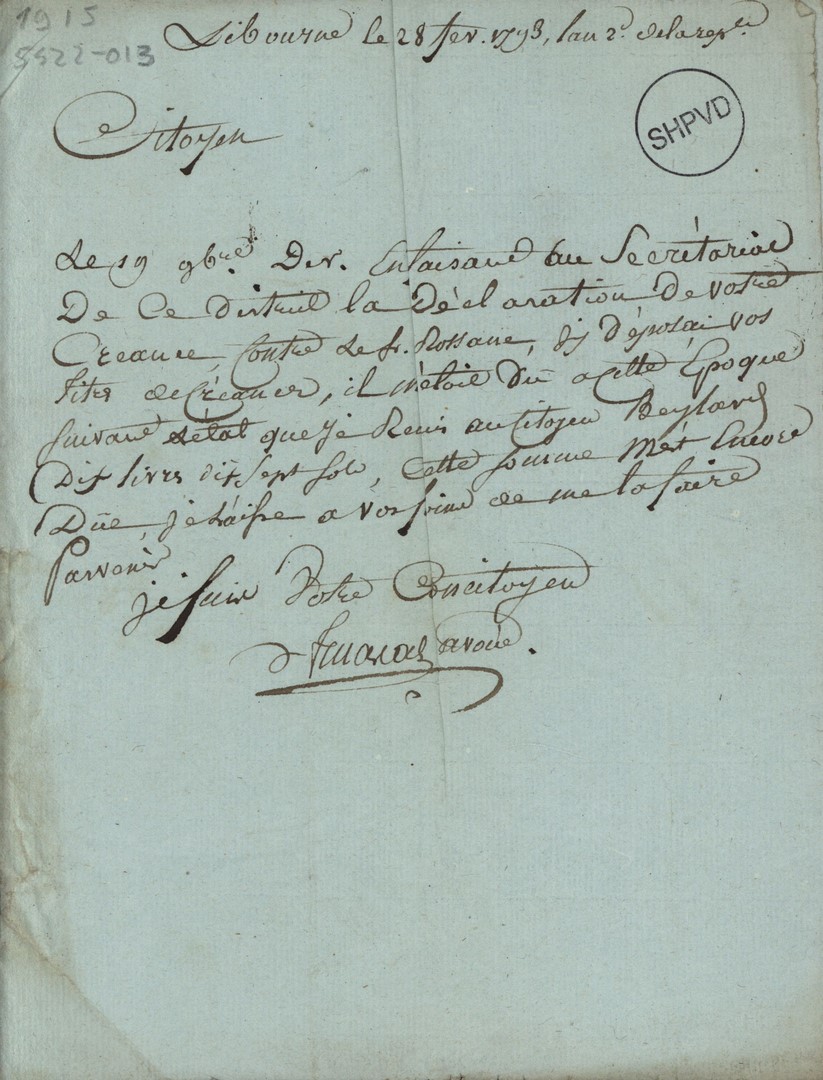 1915
5522-013
Libourne le 28 fev. 1793, lan 2e. de la rep.
SHPVD
Citoyen
Le 19 9bre. Der. En faisant au Secrétariat
De Ce district la Déclaration De votre
Créance, Contre Le Sr. Rossane, Dj Déposai vos
titres de Créances, il m'étoit Dû a Cette Epoque
suivant L'état que je Remis au Citoyen Beylard
Dix livres dix sept sols, Cette somme M'est Encore
Düe, je Laisse a vos soins de me la faire
parvenir
je suis Votre Concitoyen
avoué.